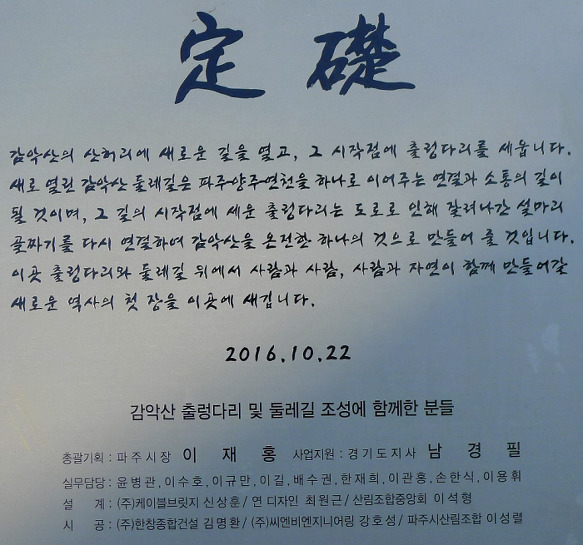 定 礎
감악산의 산허리에 새로운 길을 열고, 그 시작점에 출렁다리를 세웁니다.
새로 열린 감악산 둘레길은 파주·양주·연천을 하나로 이어주는 연결과 소통의 길이
될 것이며, 그 길의 시작점에 세운 출렁다리는 도로로 인해 잘려나간 설마리
골짜기를 다시 연결하여 감악산을 온전한 하나의 것으로 만들어 줄 것입니다.
이곳 출렁다리와 둘레길 위에서 사람과 사람, 사람과 자연이 함께 만들어갈
새로운 역사의 첫 장을 이곳에 새깁니다.
2016.10.22
감악산 출렁다리 및 둘레길 조성에 함께한 분들
총괄기획 : 파주시장 이 재 홍 사업지원 : 경기도지사 남 경 필
실무담당 : 윤병관, 이수호, 이규만, 이길, 배수권, 한재희, 이관홍, 손한식, 이용휘
설 계 : (주)케이블브릿지 신상훈 / 연 디자인 최원근 / 산림조합중앙회 이석형
시 공 : (주)한창종합건설 김명환 / (주)씨엔비엔지니어링 강호성 / 파주시산림조합 이성렬